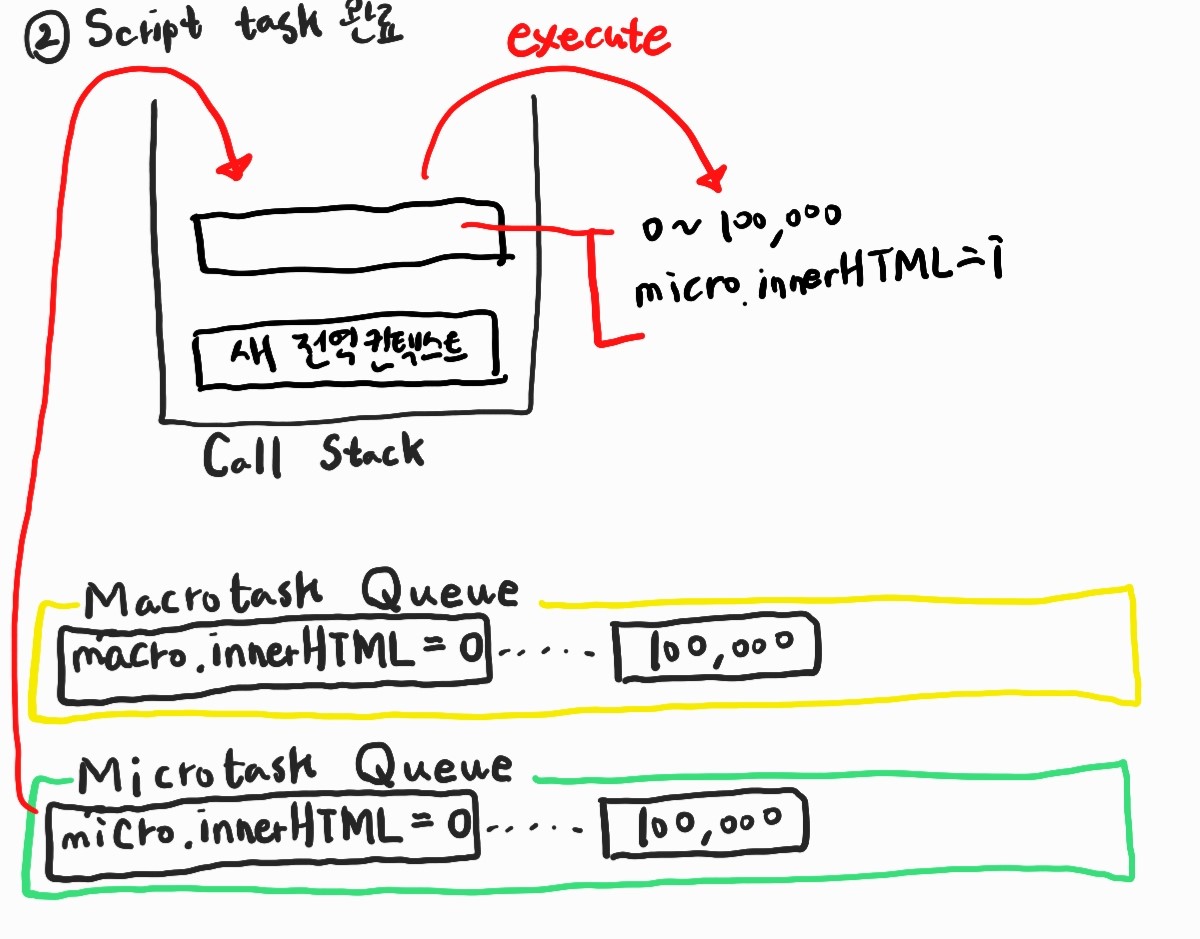 ② Script task 완료
execute
0 ~ 100,000
micro.innerHTML = i
새 전역 컨텍스트
Call Stack
Macrotask Queue
macro.innerHTML = 0 ..... 100,000
Microtask Queue
micro.innerHTML = 0 ..... 100,000